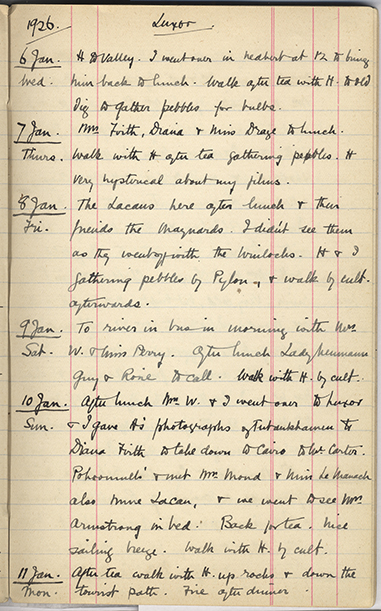 1926. Luxor.
6 Jan. H to Valley. I went over in at 12 to bring
Wed. him back to lunch. Walk after tea with H. to old
dig to gather pebbles for bulbs.
7 Jan. Mrs Firth, Diana & Miss to lunch.
Thurs. Walk with H after tea gathering pebbles. H
very hysterical about my films.
8 Jan. The Lacaus here after lunch & their
Fri. friends the Maynards. I didn't see them
as they went off with the Winlocks. H & I
gathering pebbles by Pylon, & walk by cult.
afterwards.
9 Jan. To river in bus in morning with Mrs
Sat. W. & Miss Perry. After lunch Lady
Guy & to call. Walk with H. by cult.
10 Jan. After lunch Mrs W. & I went over to Luxor
Sun. & I gave H's photographs of Tutankhamen to
Diana Firth to take down to Cairo to Mr Carter.
& met Mrs Mond & Miss Le Manach
also Mme Lacau, & we went to see Mrs
Armstrong in bed. Back for tea. Nice
sailing breeze. Walk with H. by cult.
11 Jan. After tea walk with H. up rocks & down the
Mon. tourist path. Fire after dinner.